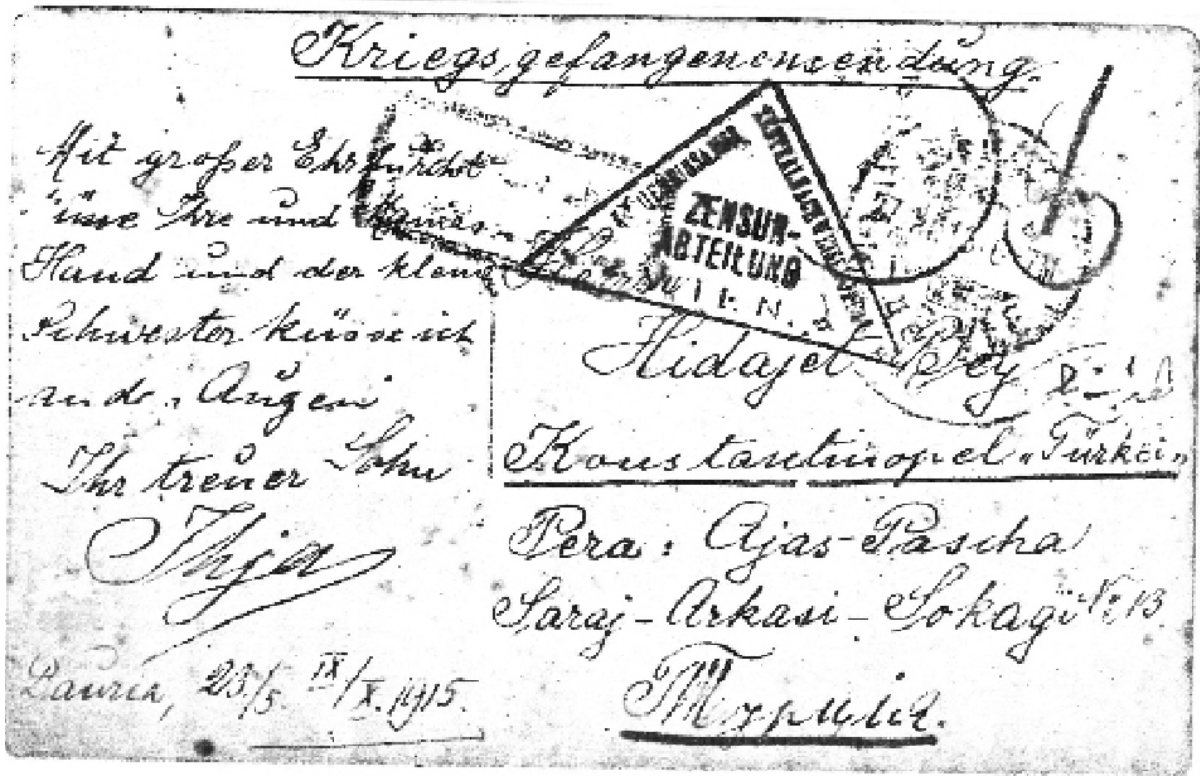 Kriegsgefangenensendung.
Mit großer Ehrfurcht
küsse Ihre und Mamas
Hand und der kleine
Schwester küsse ich
ande Augen
Ihr treuer Sohn
Dauria, 23/5. IX/X. 1915.
ZENSUR-
ABTEILUNG
Hidajet Bey
Konstantinopel „Türkei"
Pera: Ajas-Pascha
Saraj-Arkasi-Sokagi № 13
Турція.